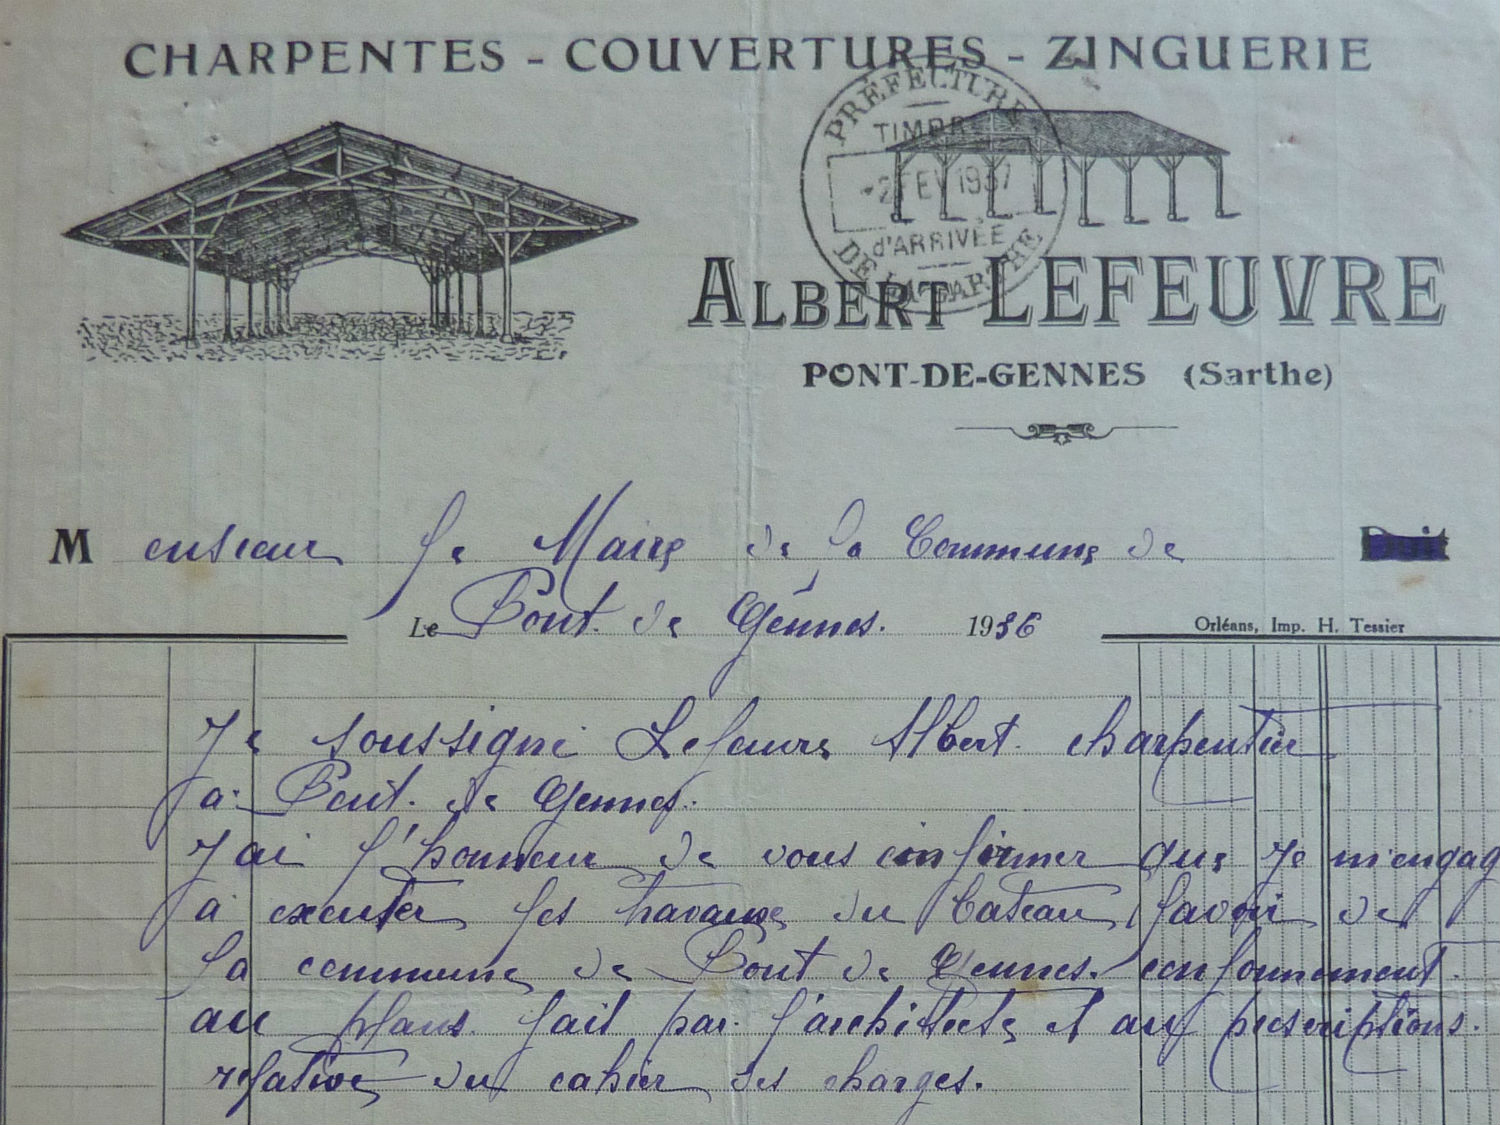 CHARPENTES - COUVERTURES - ZINGUERIE
PRÉFECTURE
TIMBRE
-2 FEV 1937
d'ARRIVÉE
DE LA SARTHE
ALBERT LEFEUVRE
PONT-DE-GENNES (Sarthe)
Monsieur le Maire de la Commune de Doit
Le Pont. de Gênnes. 1936
Orléans, Imp. H. Tessier
Je soussigné Lefeuvre Albert. charpentier
a Pont. de Gennes.
J'ai l'honneur de vous informer que je m'engag
a executer les travaux du bateau lavoir de
la commune de Pont de Gennes. conformement.
au plans fait par l'architecte et aux prescriptions.
relative du cahier des charges.